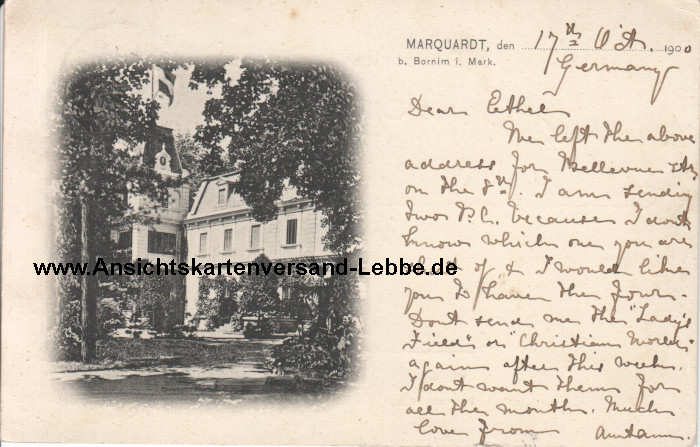 MARQUARDT, den 17th Oct. 1900
b. Bornim i. Mark.
Germany
Dear Ethel
We left the above
address for Bellevue Str
on the 8th. I am sending
two P.C. because I dont
know which one you are
short of, & I would like
you to have the four.
Dont send me the "Lady's
Field" or "Christian World"
again after this week.
I dont want them for
all the months. Much
love from
www.Ansichtskartenversand-Lebbe.de